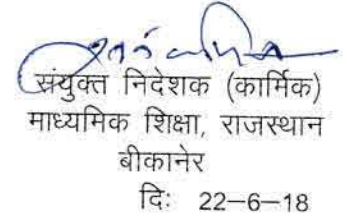 संयुक्त निदेशक (कार्मिक)
माध्यमिक शिक्षा, राजस्थान
बीकानेर
दिः 22–6–18